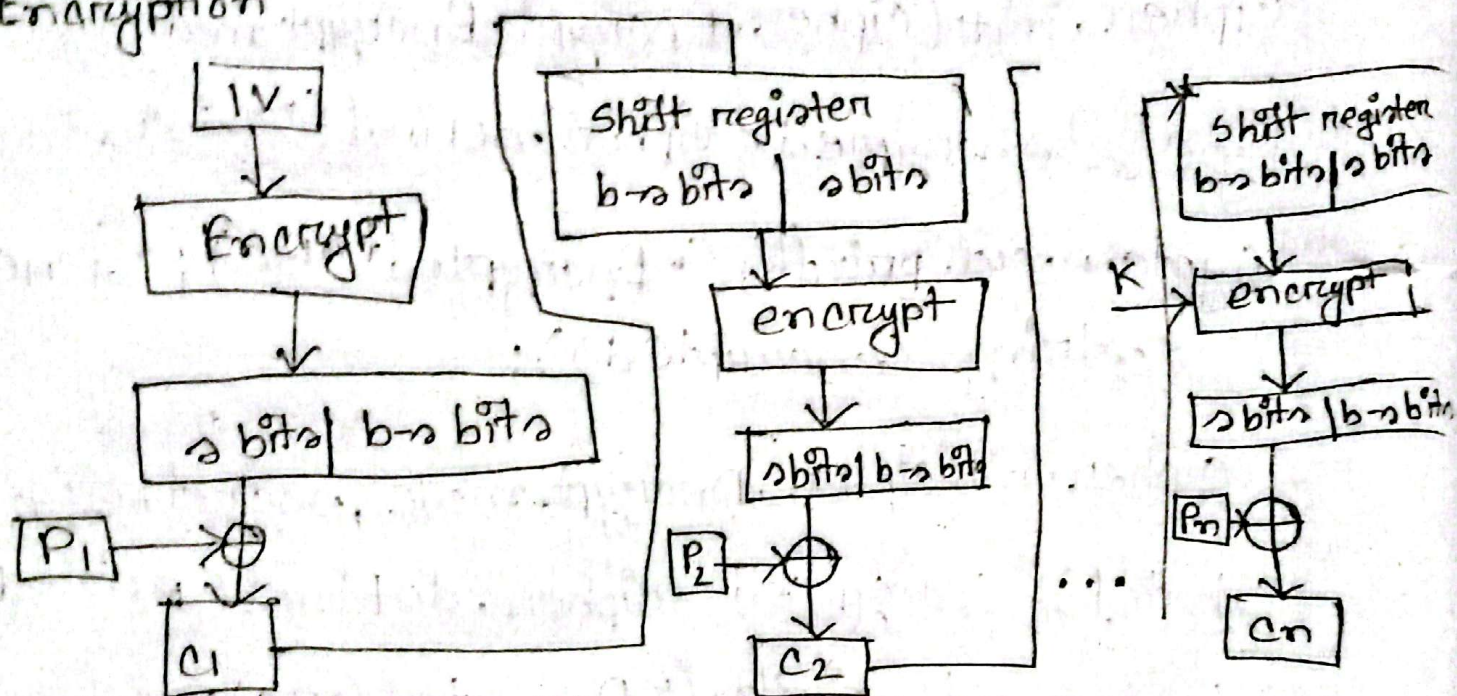 Encryption
IV
Encrypt
s bits | b-s bits
P1
C1
Shift register
b-s bits | s bits
encrypt
s bits | b-s bits
P2
C2
...
Shift register
b-s bits | s bits
K
encrypt
s bits | b-s bits
Pn
Cn